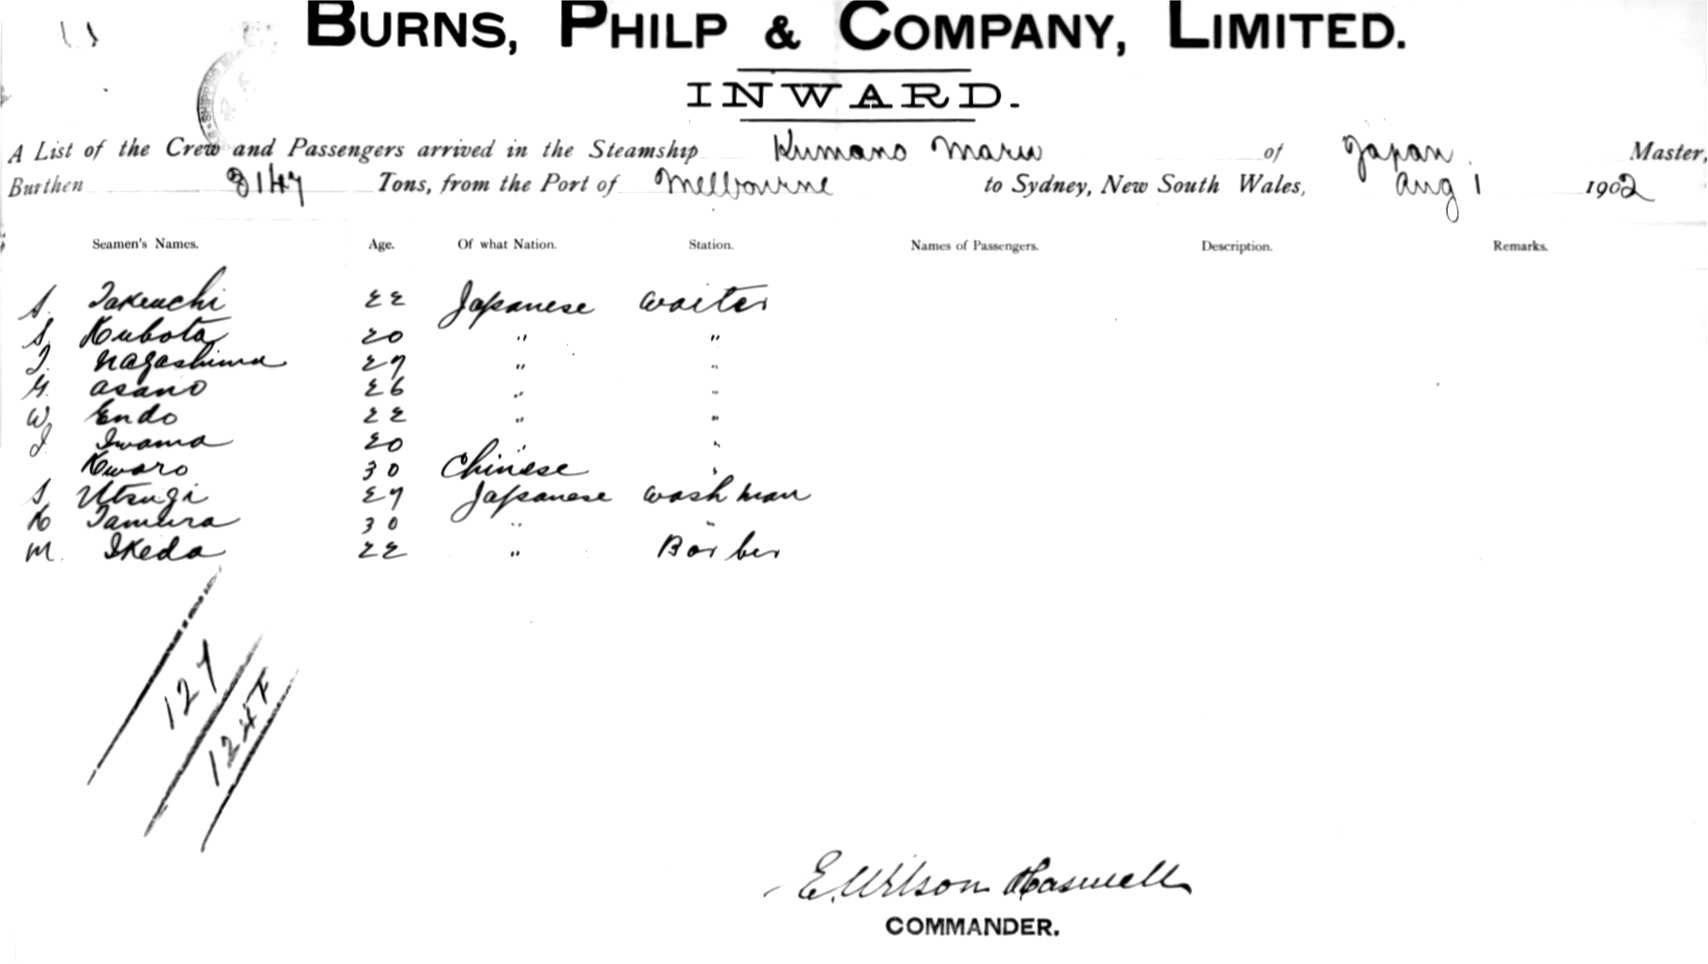 BURNS, PHILP & COMPANY, LIMITED.
INWARD.
A List of the Crew and Passengers arrived in the Steamship Kumano Maru of Japan. Master,
Burthen 3147 Tons, from the Port of Melbourne to Sydney, New South Wales, Aug 1 1902
Seamen's Names. Age. Of what Nation. Station. Names of Passengers. Description. Remarks.
S. Takeuchi 22 Japanese Waiter
S. Kubota 20 " "
T. Nagashima 27 " "
G. Asano 26 " "
W. Endo 22 " "
I. Iwama 20 " "
Kwaro 30 Chinese "
S. Utsugi 27 Japanese Wash man
K Tamura 30 " "
M. Ikeda 22 " Barber
127
124
E. Wilson Haswell
COMMANDER.